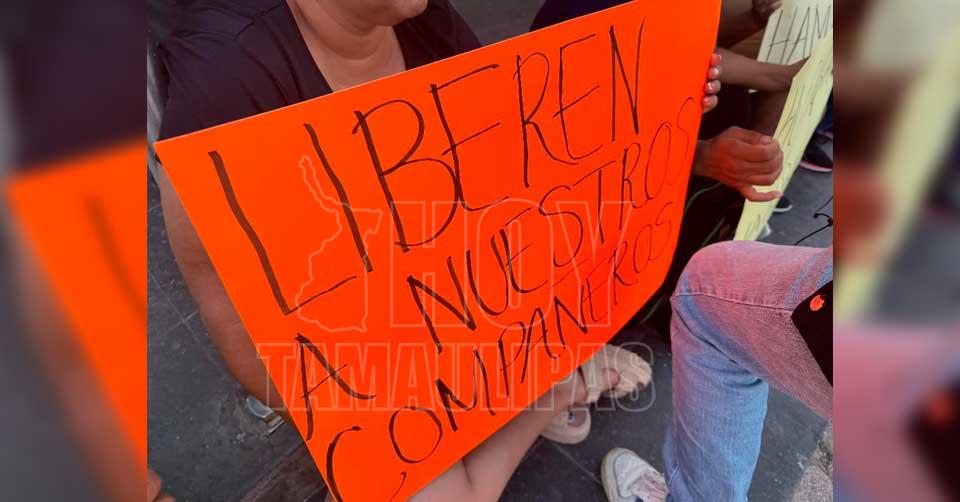 LIBEREN
A NUESTROS
COMPAÑEROS
HOY
TAMAULIPAS
HAM